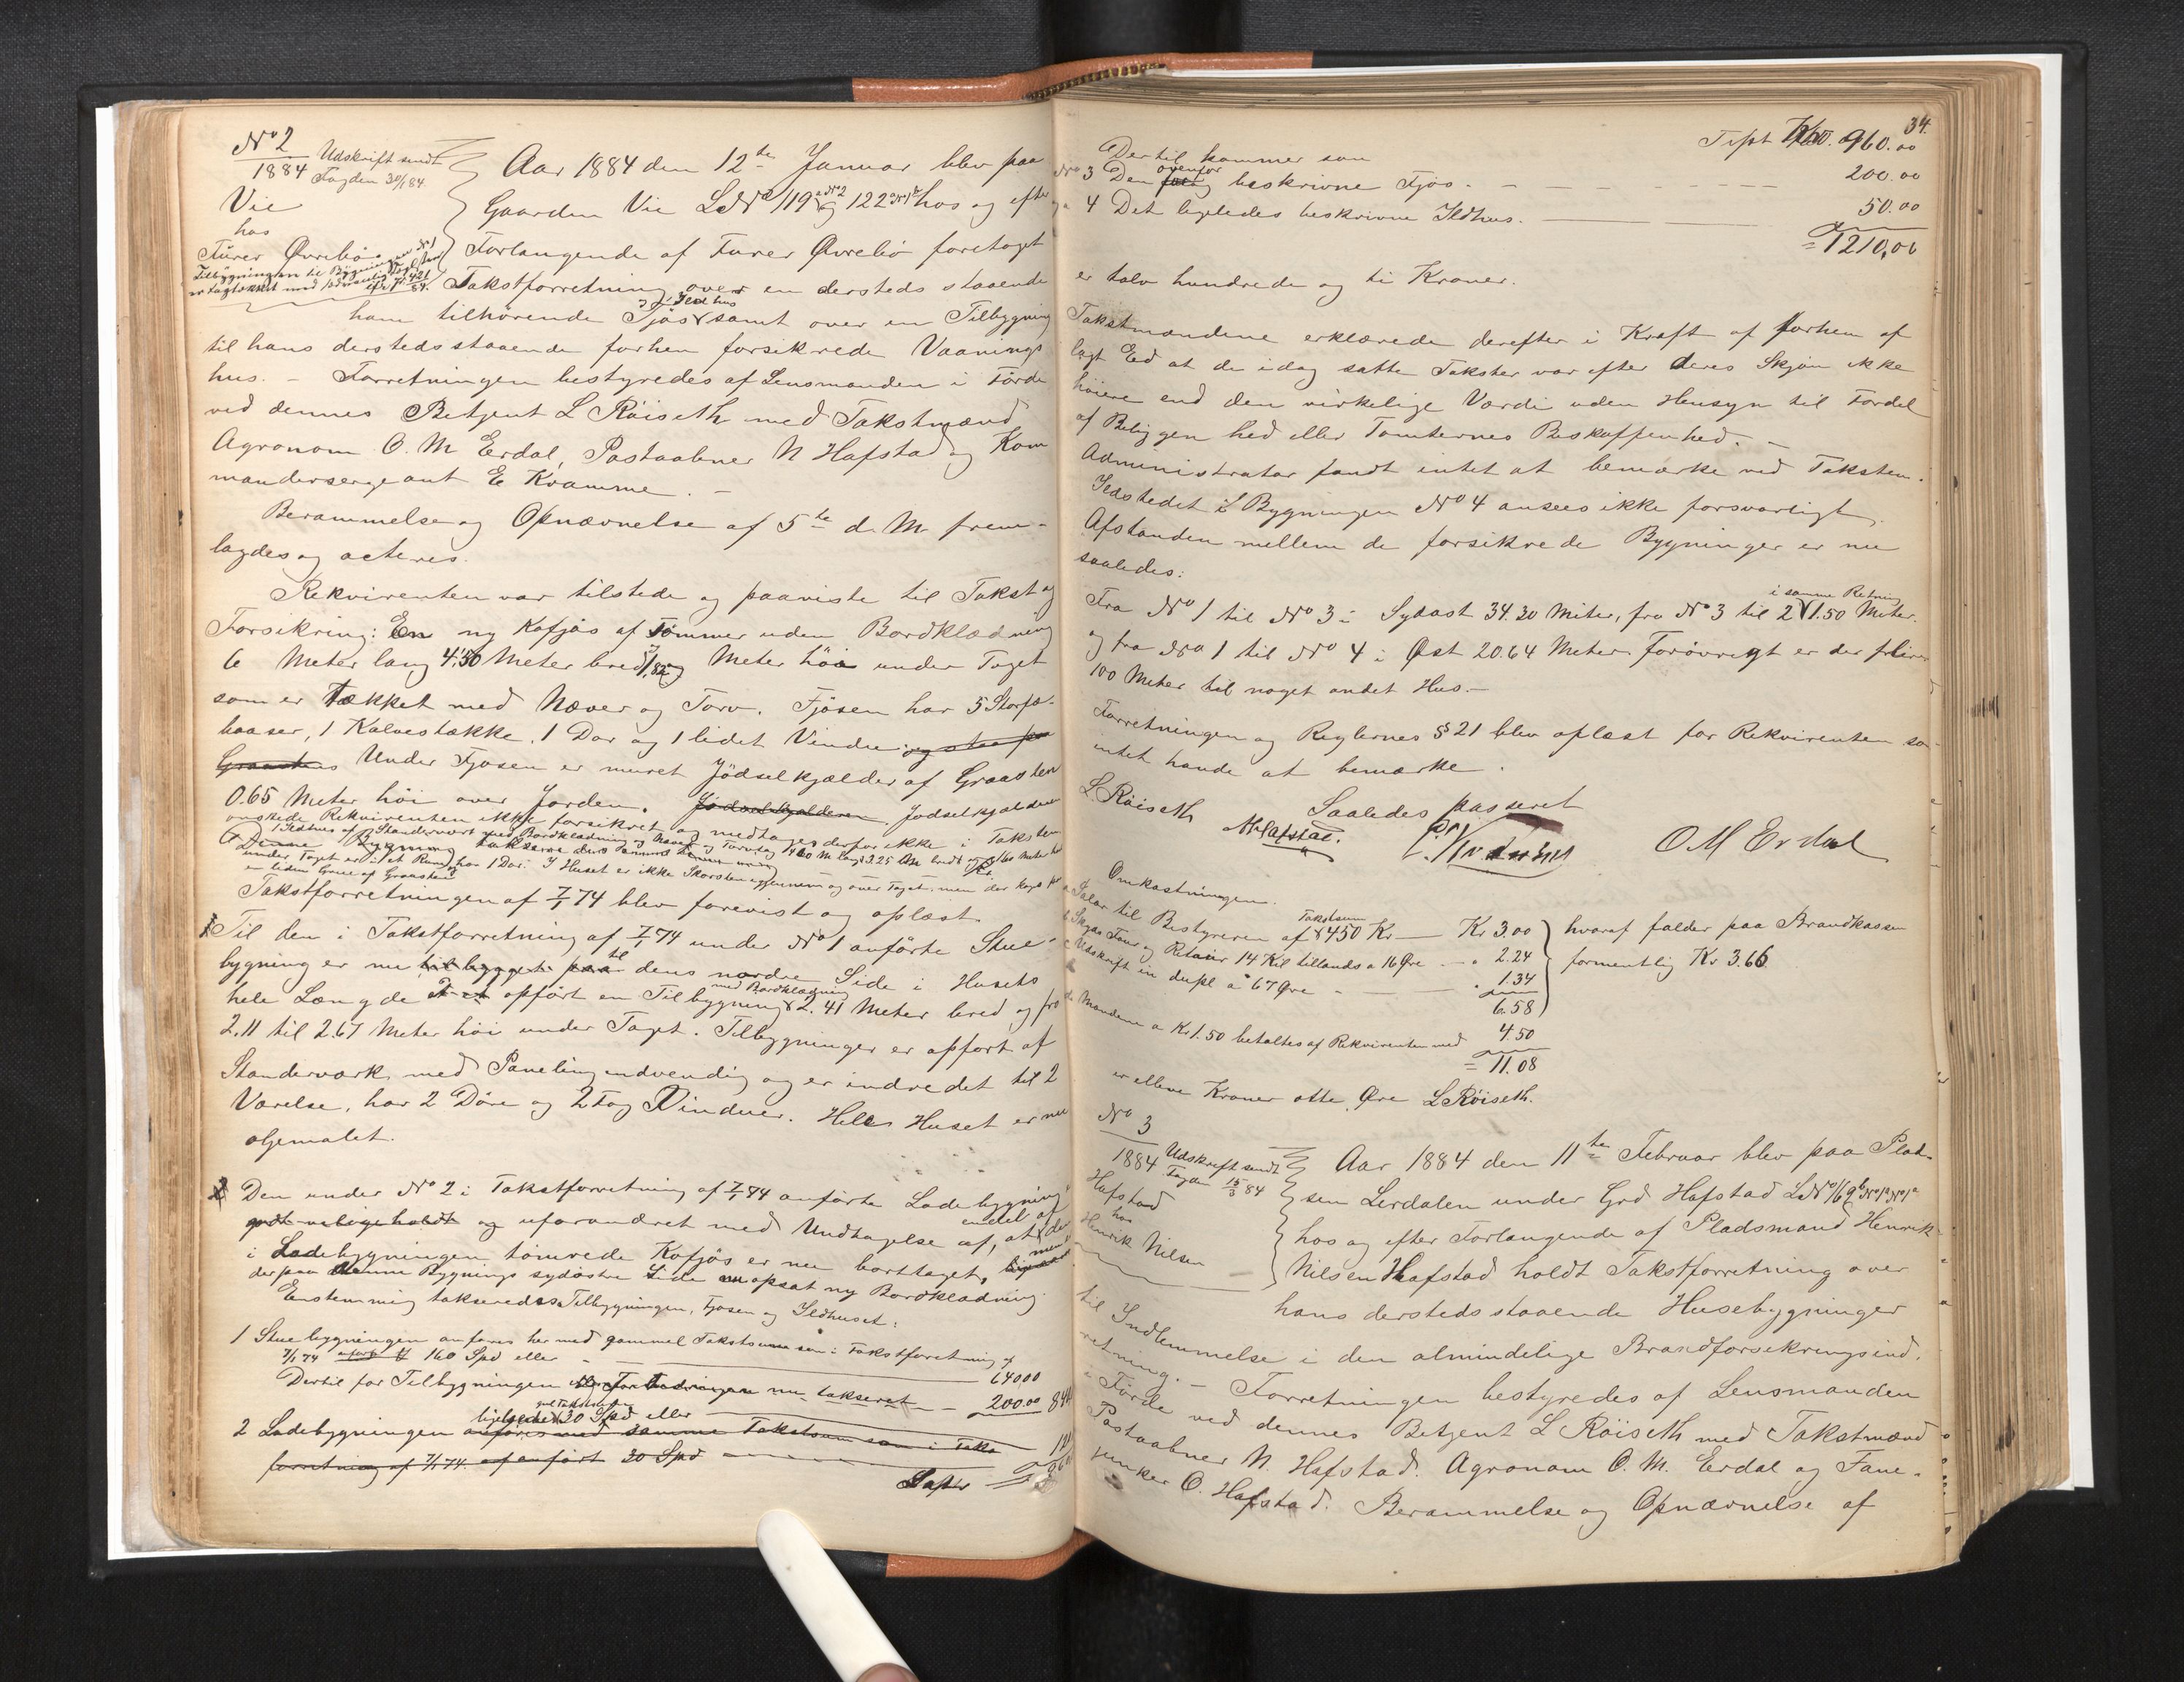 No 2
1884 Udskrift sendt
Fogden 30/1 84.
Vie
hos
Furer Øvrebø
Tilbygningen til Bygningen No 1
er tagtækket med
Aar 1884 den 12te Januar blev paa
Gaarden Vie L.No 119a No 2 og 122a No 1 hos og efter
Forlangende af Furer Øvrebø foretaget
Takstforretning over en dersteds staaende
ham tilhörende Fjös og Ildhus samt over en Tilbygning
til hans dersteds staaende forhen forsikrede Vaanings
hus. – Forretningen bestyredes af Lensmanden i Förde
ved dennes Betjent L Röiseth med Takstmænd
Agronom O. M Erdal, Postaabner N Hafstad og Kom
mandersergeant E Kvamme. –
Berammelse og Opnævnelse af 5te d. M. frem-
lagdes og acteres.
Rekvirenten var tilstede og paaviste til Takst og
Forsikring: En ny Kofjös af Tömmer uden Bordklædning
6 Meter lang 4.50 Meter bred og 1.82 Meter höi under Taget
som er Tækket med Næver og Torv. Fjösen har 5 Storfæ-
baaser, 1 Kalvestække, 1 Dör og 1 lidet Vindue og staa paa
Graasten Under Fjosen er muret Jödselkjælder af Graasten
0.65 Meter höi over Jorden. Jödselkjælderen Jödselkjælderen
önskede Rekvirenten ikke forsikret og medtages derfor ikke i Taksten
1 Ildhus af Standerværk med Bordklædning og Næver og Torvtag 4.60 M. langt 3.25 M. bredt og 1.60 Meter höi
Denne Bygning takseres
under Taget er i et Rum og har 1 Dör. I Huset er ikke Skorsten igjennem og over Taget, men der
en liden Grue af Graasten
Takstforretningen af 7/1 74 blev forevist og oplæst.
1 Til den i Takstforretning af 7/1 74 under No 1 anförte Stue-
bygning er nu tilbygget paa til dens nordre Side i Husets
hele Længde opfört en Tilbygning med Bordklædning 2.41 Meter bred og fra
2.11 til 2.67 Meter höi under Taget. Tilbygninger er opfört af
Standerværk med Paneling indvendig og er indredet til 2
Værelse, har 2 Döre og 2 Fag Vinduer. Hele Huset er nu
oljemalet.
2 Den under No 2 i Takstforretning af 7/1 74 anförte Ladebygning
godt vedligeholdt og uforandret med Undtagelse af, at endel af den
i Ladebygningen tömrede Kofjös er nu borttaget, men
der paa denne Bygnings sydöstre Side er opsat ny Bordklædning.
Enstemmig takseredes Tilbygningen, Fjösen og Ildhuset:
1 Stuebygningen anföres her med gammel Takstsum som i Takstforretning af
7/1 74 anfört 160 Spd eller – 640 00
Dertil for Tilbygningen nu takseret – 200.00 840
2 Ladebygningen ligeledes gml Takstsum 30 Spd eller – 120
anföres med samme Takstsum som i Takst
forretning af 7/1 74 anfört 30 Spd –
Later 960
34.
Tept 960.00
Dertil kommer som
No 3 Den ovenfor beskrivne Fjös. – 200.00
" 4 Det ligeledes beskrivne Ildhus. – 50.00
= 1210,00
er tolv hundrede og ti Kroner.
Takstmændene erklærede derefter i Kraft af forhen af
lagt Eed at de idag satte Takster var efter deres Skjön ikke
höiere end den virkelige Værdi uden Hensyn til Fordel
af Beliggenhed eller Tomternes Beskaffenhed. –
Administrator fandt intet at bemærke ved Taksten.
Ildstedet i Bygningen No 4 ansees ikke forsvarligt.
Afstanden mellem de forsikrede Bygninger er nu
saaledes:
Fra No 1 til No 3 i Sydost 34.30 Meter, fra No 3 til 2 i samme Retning 1.50 Meter.
og fra No 1 til No 4 i Øst 20.64 Meter. Forövrigt er der flere
100 Meter til noget andet Hus. –
Forretningen og Reglernes § 21 blev oplæst for Rekvirenten som
intet havde at bemærke.
Saaledes passeret
L. Röiseth N. Hafstad. E. Kvamme O M Erdal
Omkostningen.
a Salær til Bestyreren af Takstsum 450 Kr – Kr 3.00
b Skyds Frem og Retour 14 Kil tillands a 16 Øre – " 2.24
c Udskrift in dupl a 67 Øre – " 1.34
6.58
hvoraf falder paa Brandkassen
formentlig Kr 3.66
d Mændene a Kr 1.50 betaltes af Rekvirenten med 4.50
= 11.08
er elleve Kroner otte Øre L Röiseth.
No 3
1884 Udskrift sendt
Fogden 15/3 84
Hafstad
hos
Henrik Nilsen
Aar 1884 den 11te Februar blev paa Plad-
sen Lerdalen under Grd Hafstad L.No 169b No 1a No 1a
hos og efter Forlangende af Pladsmand Henrik
Nilsen Hafstad holdt Takstforretning over
hans dersteds staaende Husebygninger
til Indlemmelse i den almindelige Brandforsikringsind-
retning. – Forretningen bestyredes af Lensmanden
i Förde ved dennes Betjent L Röiseth med Takstmænd
Postaabner N. Hafstad. Agronom O. M. Erdal og Fane-
junker O. Hafstad. Berammelse og Opnævnelse af